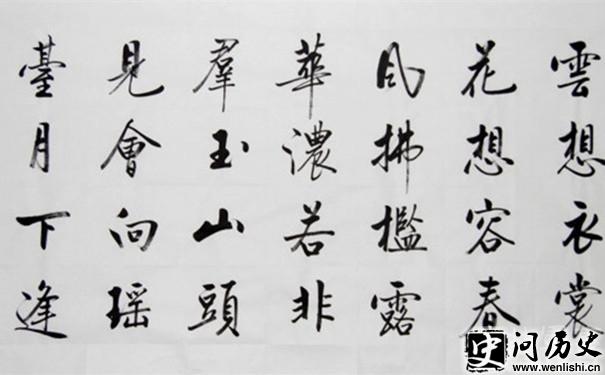 雲想衣裳
花想容春
风拂檻露
華濃若非
羣玉山頭
見會向瑶
臺月下逢
史 问历史
www.wenlishi.cn